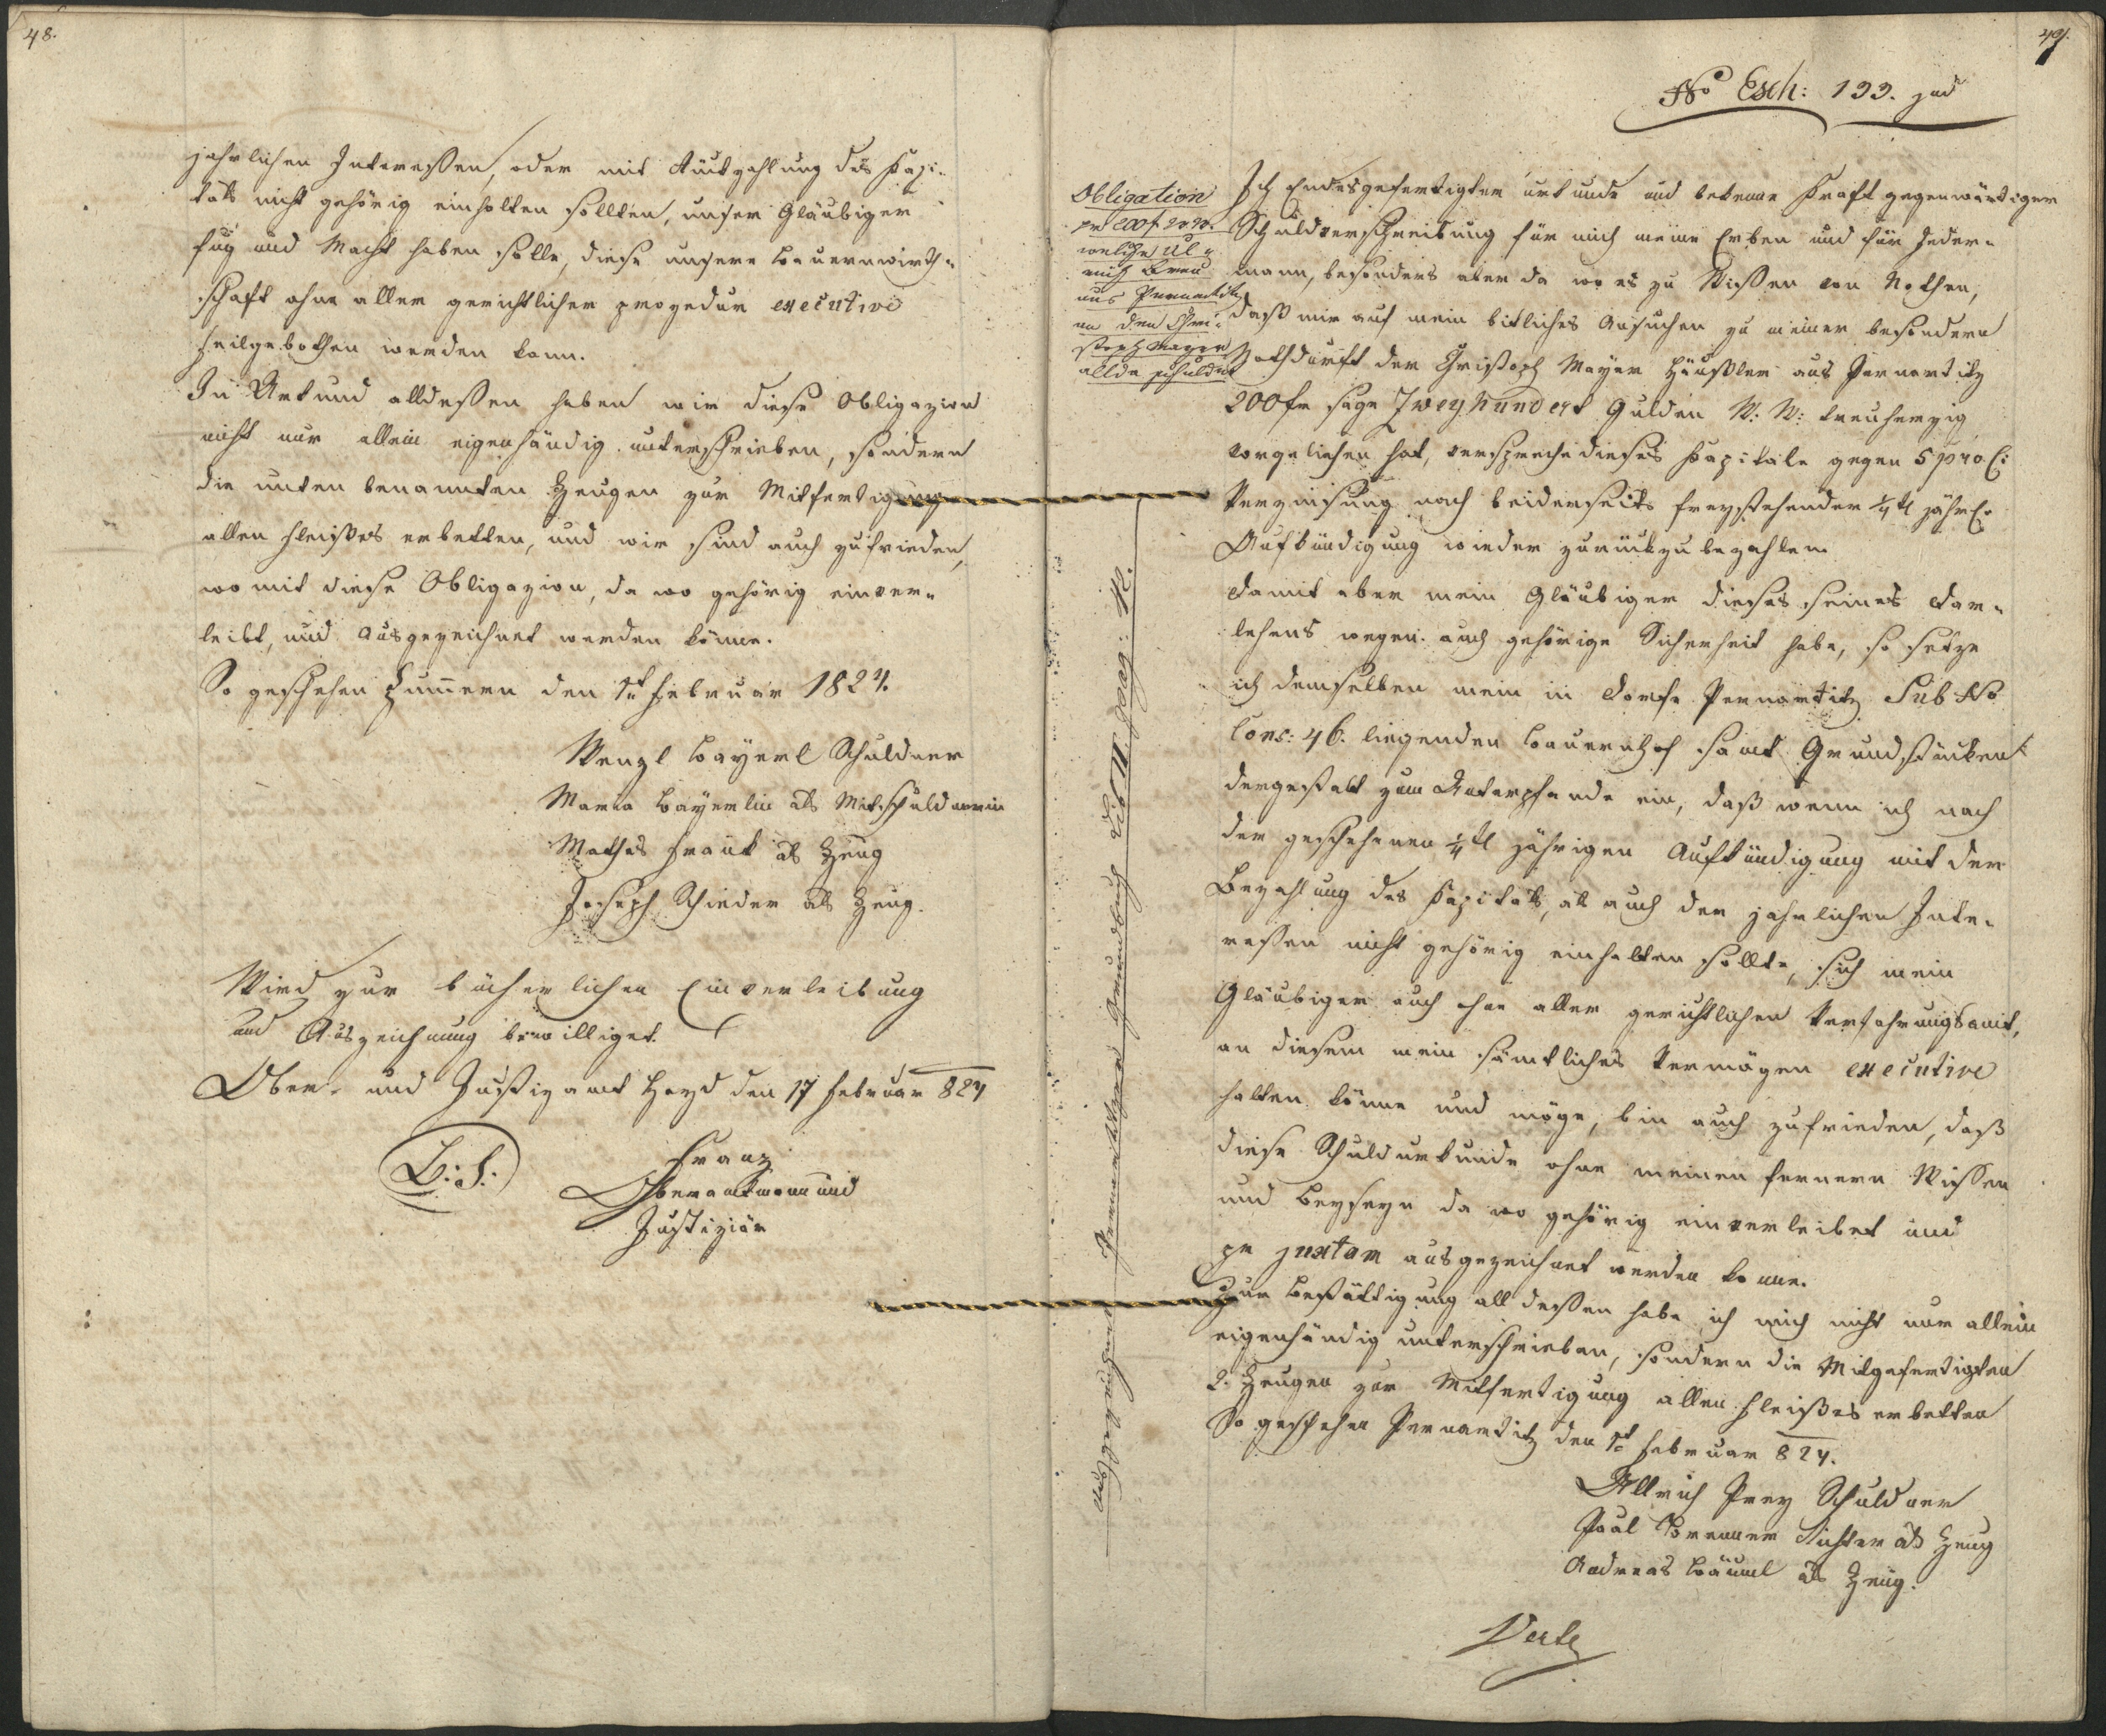 48.
jahrlichen Interessen, oder mit Rückzahlung des Kapi-
tals nicht gehörig einhalten sollten, unser Gläubiger
fug und Macht haben solle, diese unsere Bauernwirth-
schaft ohne aller gerichtlicher prozedur executive
feilgebothen werden kann.
In Urkund alldessen haben wir diese Obligazion
nicht nur allein eigenhändig unterschrieben, sondern
die unten benannten Zeugen zur Mitfertigung
allen Fleißes erbetten, und wir sind auch zufrieden,
womit diese Obligazion, da wo gehörig einver-
leibt, und ausgezeichnet werden könne.
So geschehen den 1t Februar 1824.
Wenzl Bayerl Schuldner
Maria Bayerlin als Mitschuldnerin
Mathes Frank als Zeug
Joseph Schieder als Zeug.
Wird zur bücherlichen Einverleibung
und Auszeichnung bewilliget.
Ober- und Justizamt Hayd den 17 Februar 824
L: S:
Franz
Oberamtmann und
Justiziär
49.
No Esch: 133. 
Obligation
pr 200 f W W.
welche Ul-
rich
aus Pernartitz
an den Chri-
stoph Mayer
allda schuldet
Ich Endesgefertigter urkunde und bekenne Kraft gegenwärtiger
Schuldverschreibung für mich meine Erben und für Jeder-
mann, besonders aber da wo es zu Wissen von Nothen,
daß mir auf mein bittliches Ansuchen zu meiner besondern
Nothdurft der Christoph Mayer Häußler aus Pernartitz
200 fr sage Zweyhundert Gulden W: W: treuherzig
vorgeliehen hat, verspreche dieses Kapitale gegen 5 pro C:
Verzinsung nach beiderseits freystehender 1/4tl jähr.
Aufkündigung wieder zurückzubezahlen
Damit aber mein Gläubiger dieses seines Dar-
lehens wegen auch gehörige Sicherheit habe, so setze
ich demselben mein in Dorfe Pernartitz Sub No
Cons: 46. liegenden Bauernhof samt Grundstücken
dergestalt zum Unterpfande ein, daß wenn ich nach
der geschehenen 1/4tl jährigen Aufkündigung mit der
Bezahlung des Kapitals, als auch der jahrlichen Inte-
ressen nicht gehörig einhalten sollte, sich mein
Gläubiger auch ohne aller gerichtlichen Verfahrungsamt,
an diesem mein sämtliches Vermögen executive
halten könne und möge, bin auch zufrieden, daß
diese Schuldurkunde ohne meinen fernern Wissen
und Beyseyn da wo gehörig einverleibet und
pr juxtam ausgezeichnet werden konne.
Zur Bestättigung all dessen habe ich mich nicht nur allein
eigenhändig unterschrieben, sondern die Mitgefertigten
2. Zeugen zur Mitfertigung allen Fleißes erbetten
So geschehen Pernartitz den 1t Februar 824.
Ullrich Prey Schuldner
Paul Richter als Zeug
Andreas Bäuml als Zeug.
Verte
Ausgezeichnet Pernartitzer Grundbuch Lib II pag: